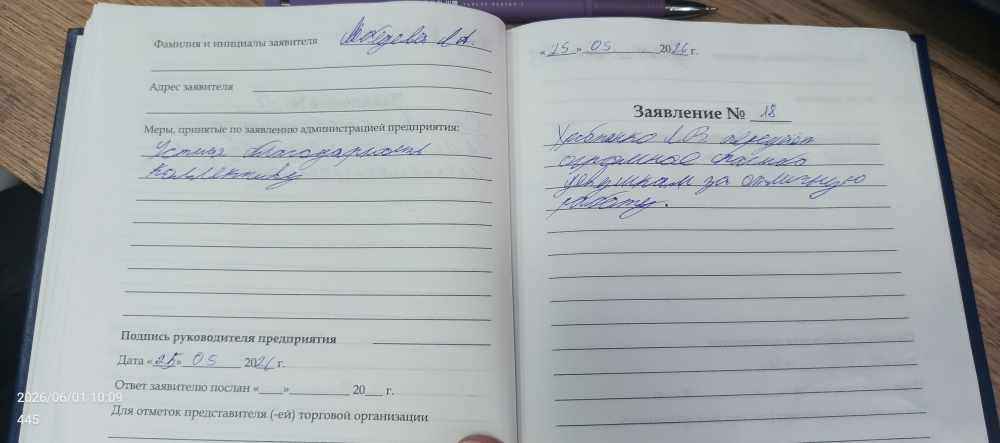 Фамилия и инициалы заявителя
Адрес заявителя
Меры, принятые по заявлению администрацией предприятия:
Устная благодарность
коллективу
Подпись руководителя предприятия
Дата «25» 05 2026 г.
Ответ заявителю послан «___» 20__ г.
Для отметок представителя (-ей) торговой организации
2026/06/01 10:09
445
«25» 05 2026 г.
Заявление № 18
передаёт
огромное спасибо
девушкам за отличную
работу.